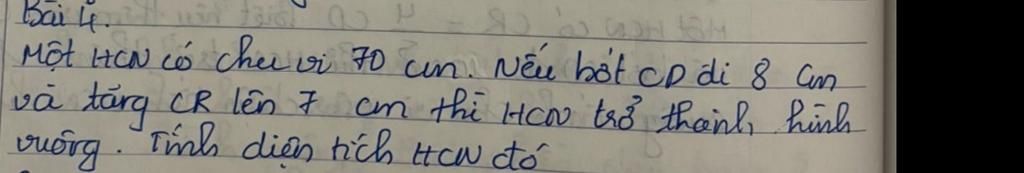 Bài 4.
Một HCN có chu vi 70 cm. Nếu bớt CD đi 8 cm
và tăng CR lên 7 cm thì HCN trở thành hình
vuông. Tính diện tích HCN đó